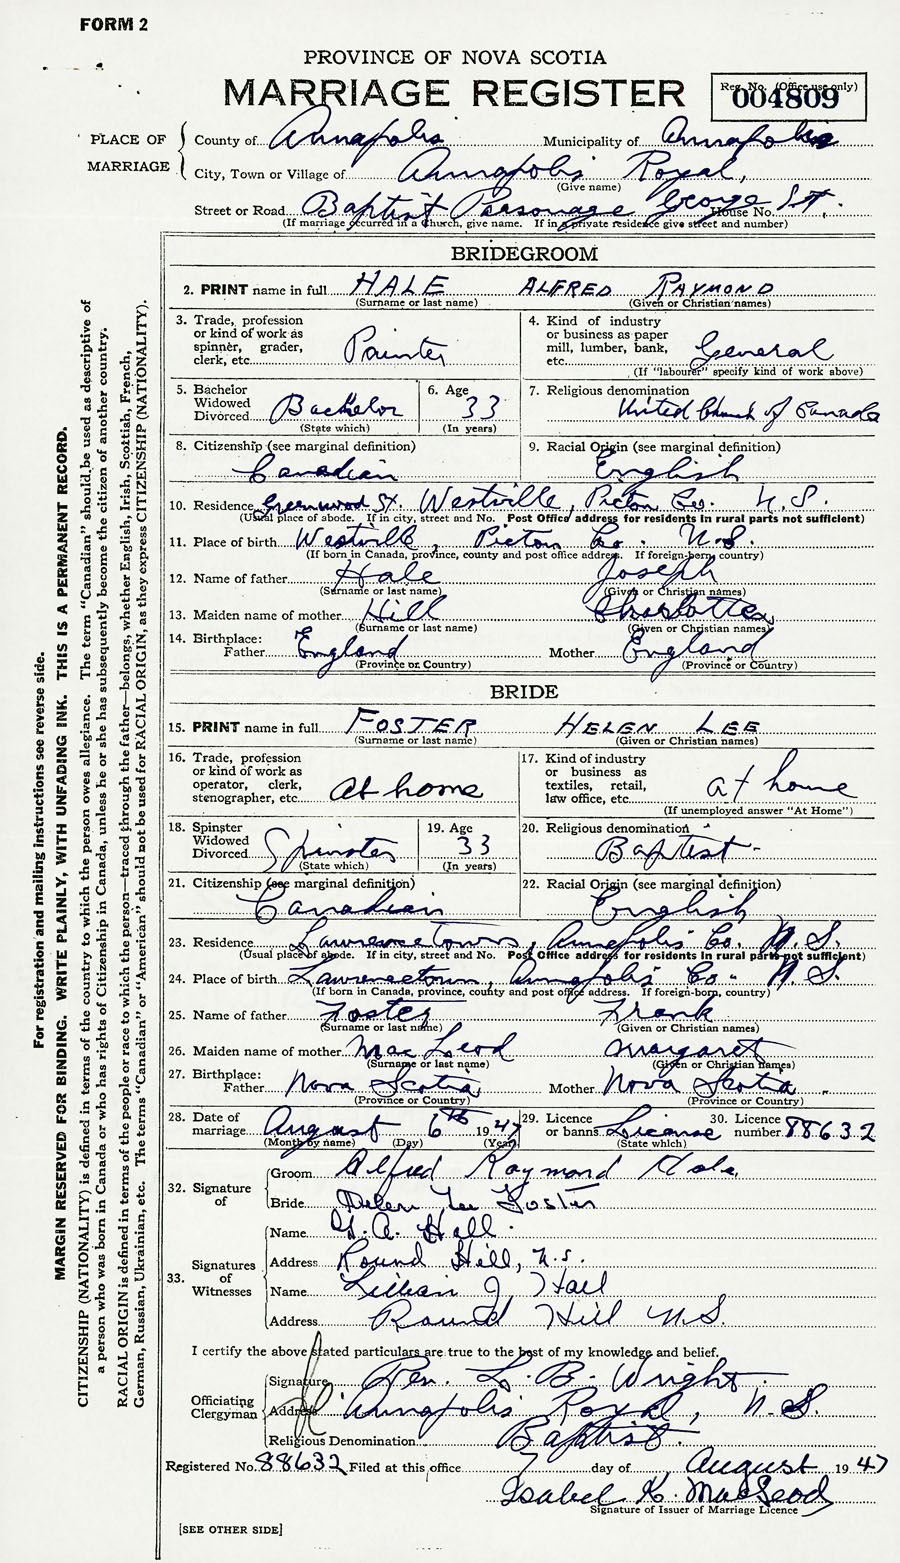 FORM 2
PROVINCE OF NOVA SCOTIA
MARRIAGE REGISTER
Reg. No. (Office use only)
004809
PLACE OF MARRIAGE
County of Annapolis Municipality of Annapolis
City, Town or Village of Annapolis Royal,
(Give name)
Street or Road Baptist Parsonage George St. House No.
(If marriage occurred in a Church, give name. If in a private residence give street and number)
BRIDEGROOM
2. PRINT name in full HALE ALFRED RAYMOND
(Surname or last name) (Given or Christian names)
3. Trade, profession or kind of work as spinner, grader, clerk, etc. Painter
4. Kind of industry or business as paper mill, lumber, bank, etc. General
(If "labourer" specify kind of work above)
5. Bachelor Widowed Divorced Bachelor
(State which)
6. Age 33
(In years)
7. Religious denomination United Church of Canada
8. Citizenship (see marginal definition) Canadian
9. Racial Origin (see marginal definition) English
10. Residence Greenwood St. Westville, Pictou Co. N.S.
(Usual place of abode. If in city, street and No. Post Office address for residents in rural parts not sufficient)
11. Place of birth Westville, Pictou Co. N.S.
(If born in Canada, province, county and post office address. If foreign-born, country)
12. Name of father Hale Joseph
(Surname or last name) (Given or Christian names)
13. Maiden name of mother Hill Charlotte
(Surname or last name) (Given or Christian names)
14. Birthplace: Father England Mother England
(Province or Country) (Province or Country)
BRIDE
15. PRINT name in full FOSTER HELEN LEE
(Surname or last name) (Given or Christian names)
16. Trade, profession or kind of work as operator, clerk, stenographer, etc. At home
17. Kind of industry or business as textiles, retail, law office, etc. at home
(If unemployed answer "At Home")
18. Spinster Widowed Divorced Spinster
(State which)
19. Age 33
(In years)
20. Religious denomination Baptist
21. Citizenship (see marginal definition) Canadian
22. Racial Origin (see marginal definition) English
23. Residence Lawrencetown, Annapolis Co. N.S.
(Usual place of abode. If in city, street and No. Post Office address for residents in rural parts not sufficient)
24. Place of birth Lawrencetown, Annapolis Co. N.S.
(If born in Canada, province, county and post office address. If foreign-born, country)
25. Name of father Foster Frank
(Surname or last name) (Given or Christian names)
26. Maiden name of mother MacLeod Margaret
(Surname or last name) (Given or Christian names)
27. Birthplace: Father Nova Scotia Mother Nova Scotia
(Province or Country) (Province or Country)
28. Date of marriage August 6th 1947
(Month by name) (Day) (Year)
29. Licence or banns License
(State which)
30. Licence number 88632
32. Signature of
Groom Alfred Raymond Hale
Bride Helen Lee Foster
33. Signatures of Witnesses
Name G. A. Hall.
Address Round Hill, N.S.
Name Lillian J. Hall
Address Round Hill N.S.
I certify the above stated particulars are true to the best of my knowledge and belief.
Officiating Clergyman
Signature Rev. L. B. Wright.
Address Annapolis Royal, N.S.
Religious Denomination Baptist.
Registered No. 88632 Filed at this office 7 day of August 1947
Isabel K. MacLeod
Signature of Issuer of Marriage Licence
[SEE OTHER SIDE]
For registration and mailing instructions see reverse side.
MARGIN RESERVED FOR BINDING. WRITE PLAINLY, WITH UNFADING INK. THIS IS A PERMANENT RECORD.
CITIZENSHIP (NATIONALITY) is defined in terms of the country to which the person owes allegiance. The term "Canadian" should be used as descriptive of
a person who was born in Canada or who has rights of Citizenship in Canada, unless he or she has subsequently become the citizen of another country.
RACIAL ORIGIN is defined in terms of the people or race to which the person—traced through the father—belongs, whether English, Irish, Scottish, French,
German, Russian, Ukrainian, etc. The terms "Canadian" or "American" should not be used for RACIAL ORIGIN, as they express CITIZENSHIP (NATIONALITY).